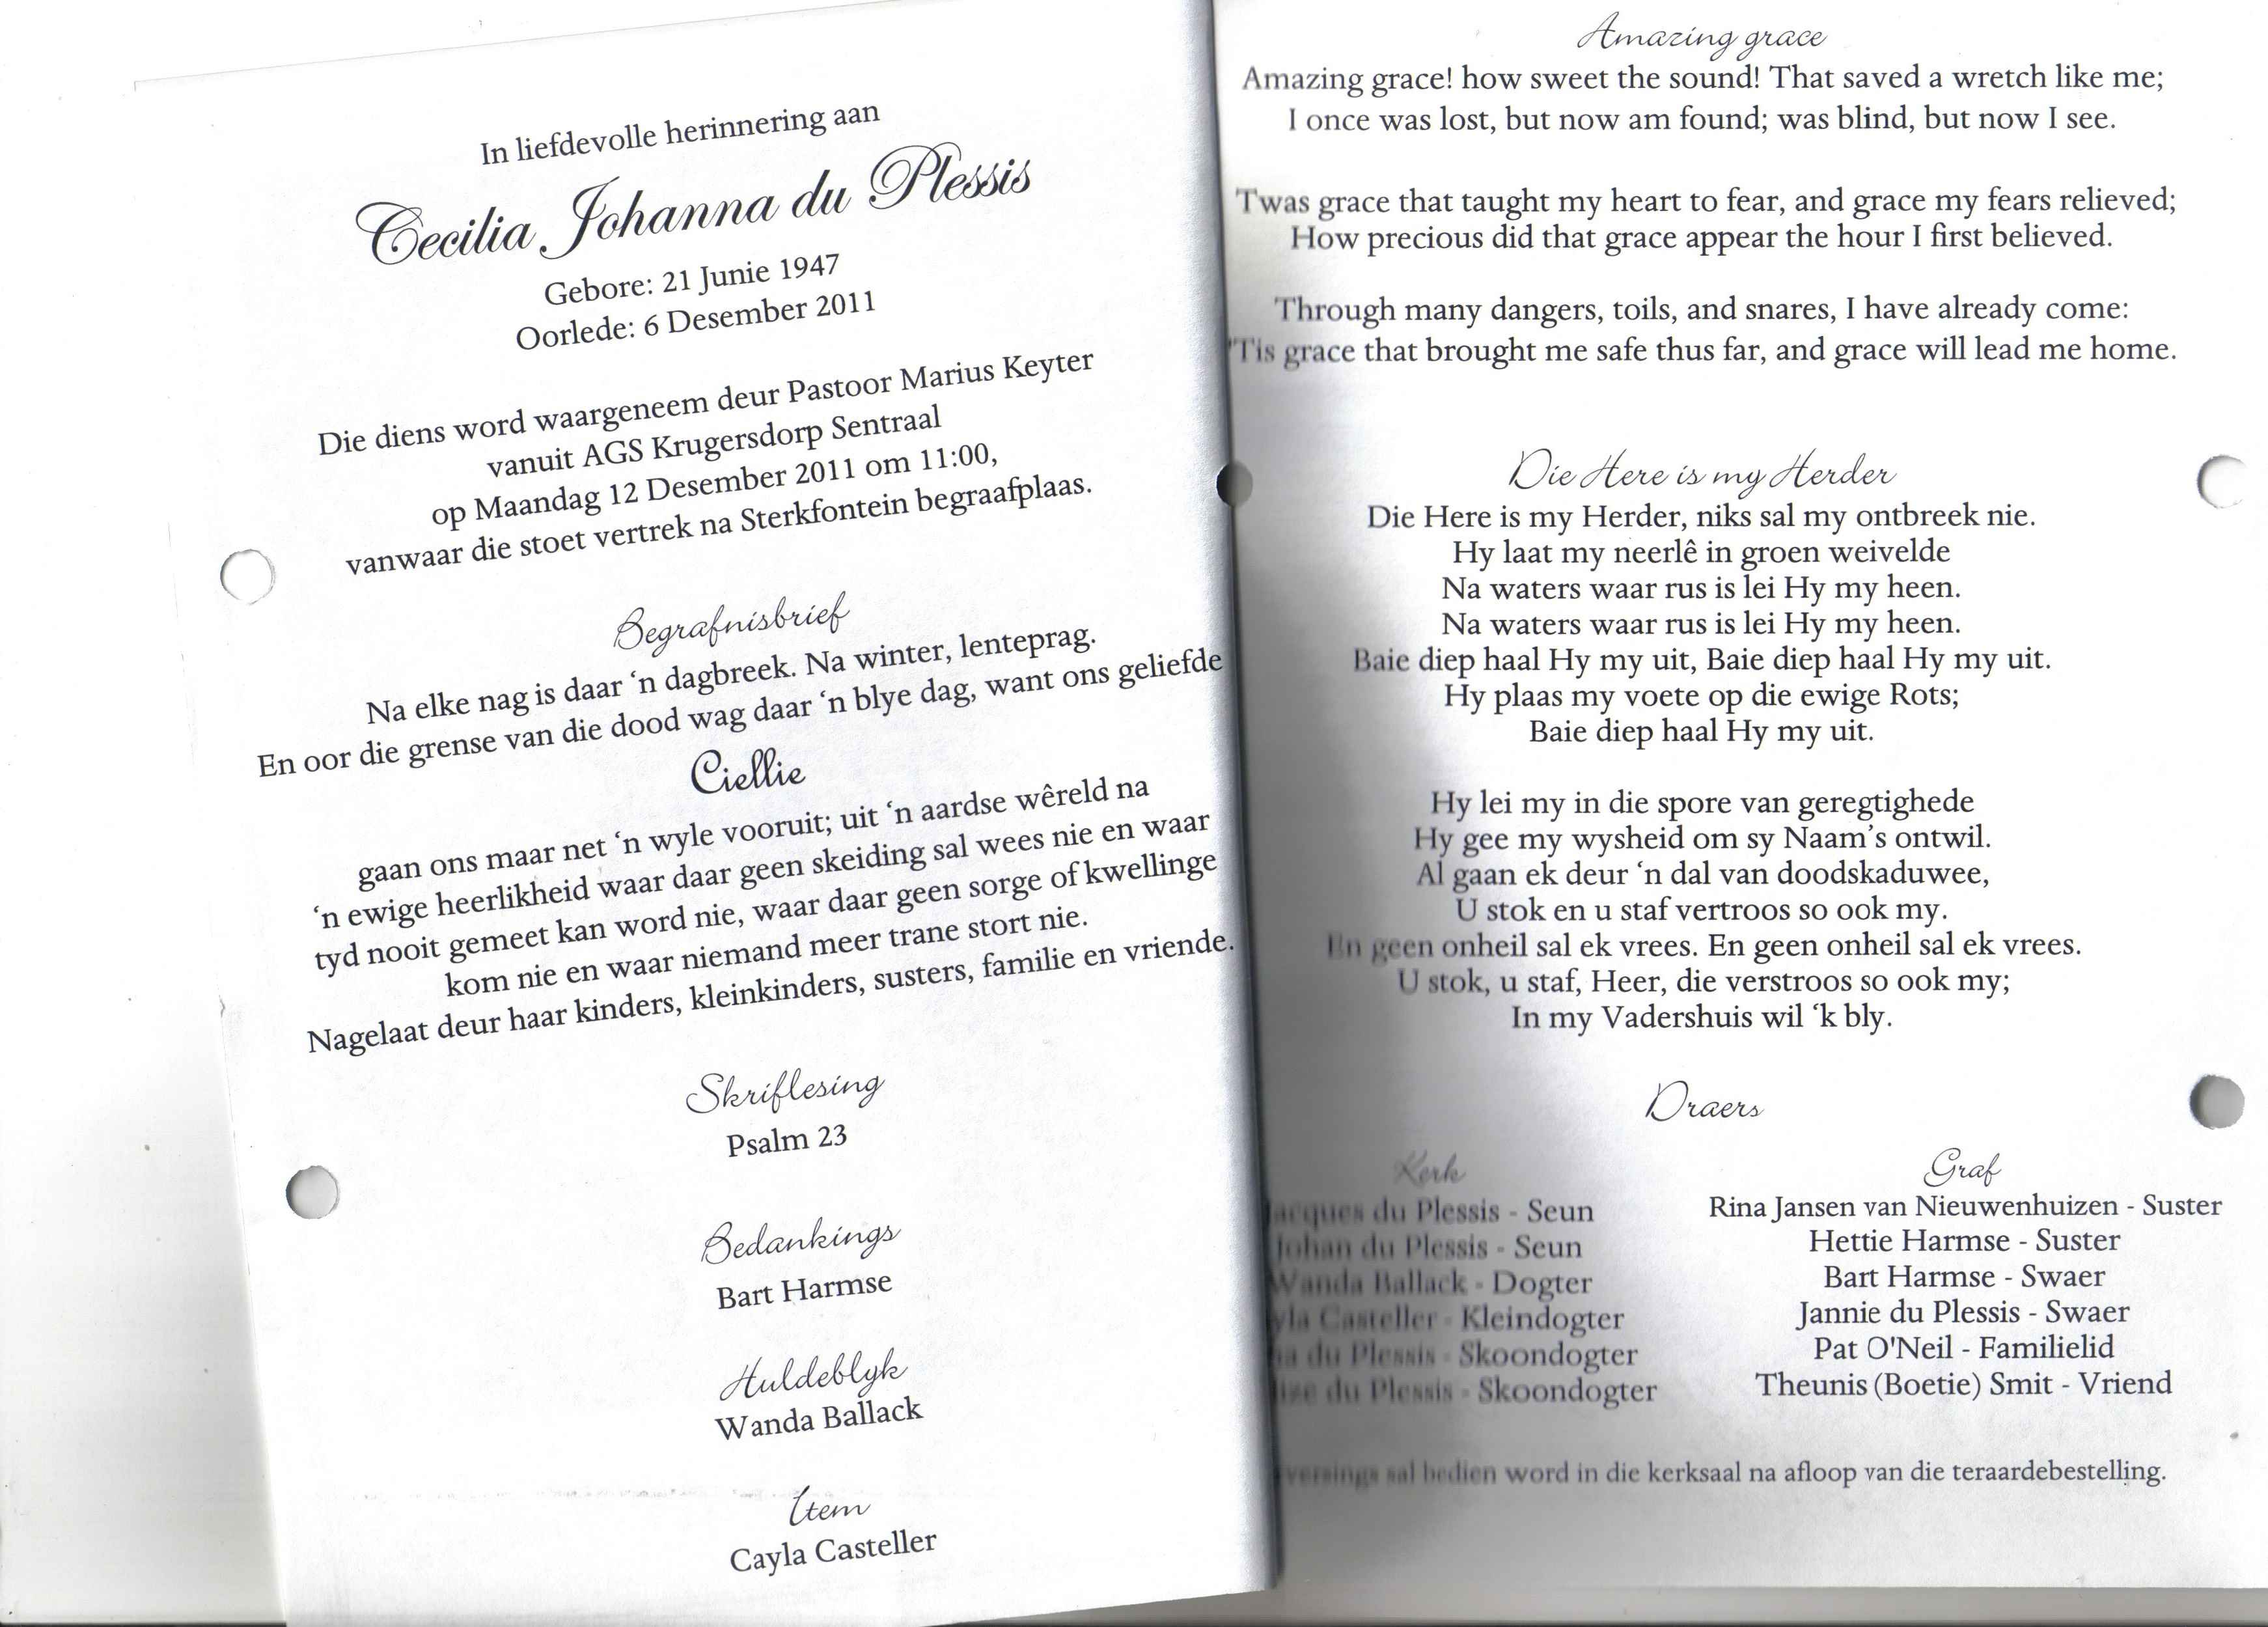 In liefdevolle herinnering aan
Cecilia Johanna du Plessis
Gebore: 21 Junie 1947
Oorlede: 6 Desember 2011
Die diens word waargeneem deur Pastoor Marius Keyter
vanuit AGS Krugersdorp Sentraal
op Maandag 12 Desember 2011 om 11:00,
vanwaar die stoet vertrek na Sterkfontein begraafplaas.
Begrafnisbrief
Na elke nag is daar ‘n dagbreek. Na winter, lenteprag.
En oor die grense van die dood wag daar ‘n blye dag, want ons geliefde
Ciellie
gaan ons maar net ‘n wyle vooruit; uit ‘n aardse wêreld na
‘n ewige heerlikheid waar daar geen skeiding sal wees nie en waar
tyd nooit gemeet kan word nie, waar daar geen sorge of kwellinge
kom nie en waar niemand meer trane stort nie.
Nagelaat deur haar kinders, kleinkinders, susters, familie en vriende.
Skriflesing
Psalm 23
Bedankings
Bart Harmse
Huldeblyk
Wanda Ballack
Item
Cayla Casteller
Amazing grace
Amazing grace! how sweet the sound! That saved a wretch like me;
I once was lost, but now am found; was blind, but now I see.
'Twas grace that taught my heart to fear, and grace my fears relieved;
How precious did that grace appear the hour I first believed.
Through many dangers, toils, and snares, I have already come:
'Tis grace that brought me safe thus far, and grace will lead me home.
Die Here is my Herder
Die Here is my Herder, niks sal my ontbreek nie.
Hy laat my neerlê in groen weivelde
Na waters waar rus is lei Hy my heen.
Na waters waar rus is lei Hy my heen.
Baie diep haal Hy my uit, Baie diep haal Hy my uit.
Hy plaas my voete op die ewige Rots;
Baie diep haal Hy my uit.
Hy lei my in die spore van geregtighede
Hy gee my wysheid om sy Naam’s ontwil.
Al gaan ek deur ‘n dal van doodskaduwee,
U stok en u staf vertroos so ook my.
En geen onheil sal ek vrees. En geen onheil sal ek vrees.
U stok, u staf, Heer, die verstroos so ook my;
In my Vadershuis wil ‘k bly.
Draers
Kerk
Jacques du Plessis - Seun
Johan du Plessis - Seun
Wanda Ballack - Dogter
Casteller - Kleindogter
du Plessis - Skoondogter
du Plessis - Skoondogter
Graf
Rina Jansen van Nieuwenhuizen - Suster
Hettie Harmse - Suster
Bart Harmse - Swaer
Jannie du Plessis - Swaer
Pat O'Neil - Familielid
Theunis (Boetie) Smit - Vriend
sal bedien word in die kerksaal na afloop van die teraardebestelling.